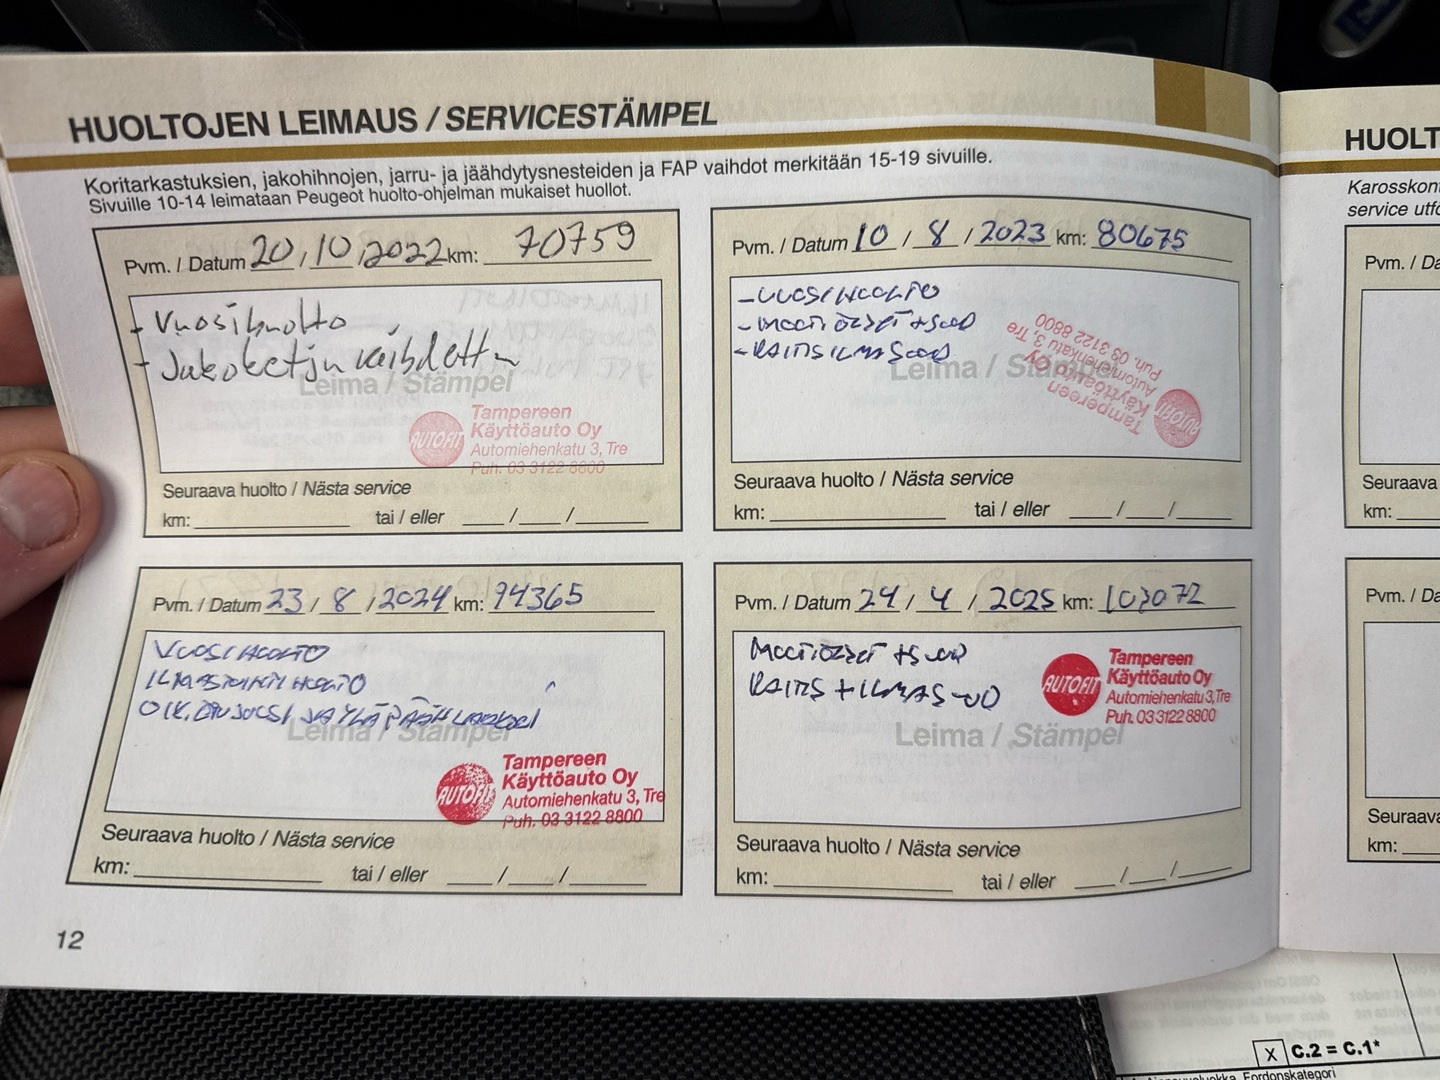 HUOLTOJEN LEIMAUS / SERVICESTÄMPEL
Koritarkastuksien, jakohihnojen, jarru- ja jäähdytysnesteiden ja FAP vaihdot merkitään 15-19 sivuille.
Sivuille 10-14 leimataan Peugeot huolto-ohjelman mukaiset huollot.
Pvm. / Datum 20 / 10 / 2022 km: 70759
- Vuosihuolto
- Jakoketju vaihdettu
Leima / Stämpel
AUTOFIT
Tampereen
Käyttöauto Oy
Automiehenkatu 3, Tre
Puh. 03 3122 8800
Seuraava huolto / Nästa service
km: tai / eller / /
Pvm. / Datum 10 / 8 / 2023 km: 80675
- VUOSIHUOLTO
- MOOTTORIÖLJYT + SUOD
- RAITISILMASUOD
Leima / Stämpel
AUTOFIT
Tampereen
Käyttöauto Oy
Automiehenkatu 3, Tre
Puh. 03 3122 8800
Seuraava huolto / Nästa service
km: tai / eller / /
Pvm. / Datum 23 / 8 / 2024 km: 94365
VUOSIHUOLTO
ILMASTOINTIHUOLTO
JA YLÄPÄÄN
Leima / Stämpel
AUTOFIT
Tampereen
Käyttöauto Oy
Automiehenkatu 3, Tre
Puh. 03 3122 8800
Seuraava huolto / Nästa service
km: tai / eller / /
Pvm. / Datum 24 / 4 / 2025 km: 103072
+ SUOD
RAITIS + ILMASUOD
Leima / Stämpel
AUTOFIT
Tampereen
Käyttöauto Oy
Automiehenkatu 3, Tre
Puh. 03 3122 8800
Seuraava huolto / Nästa service
km: tai / eller / /
12
HUOLT
Karosskon
service utfö
Pvm. / Da
Seuraava
km:
Pvm. / Da
Seuraava
km:
X C.2 = C.1*
Fordonskategori